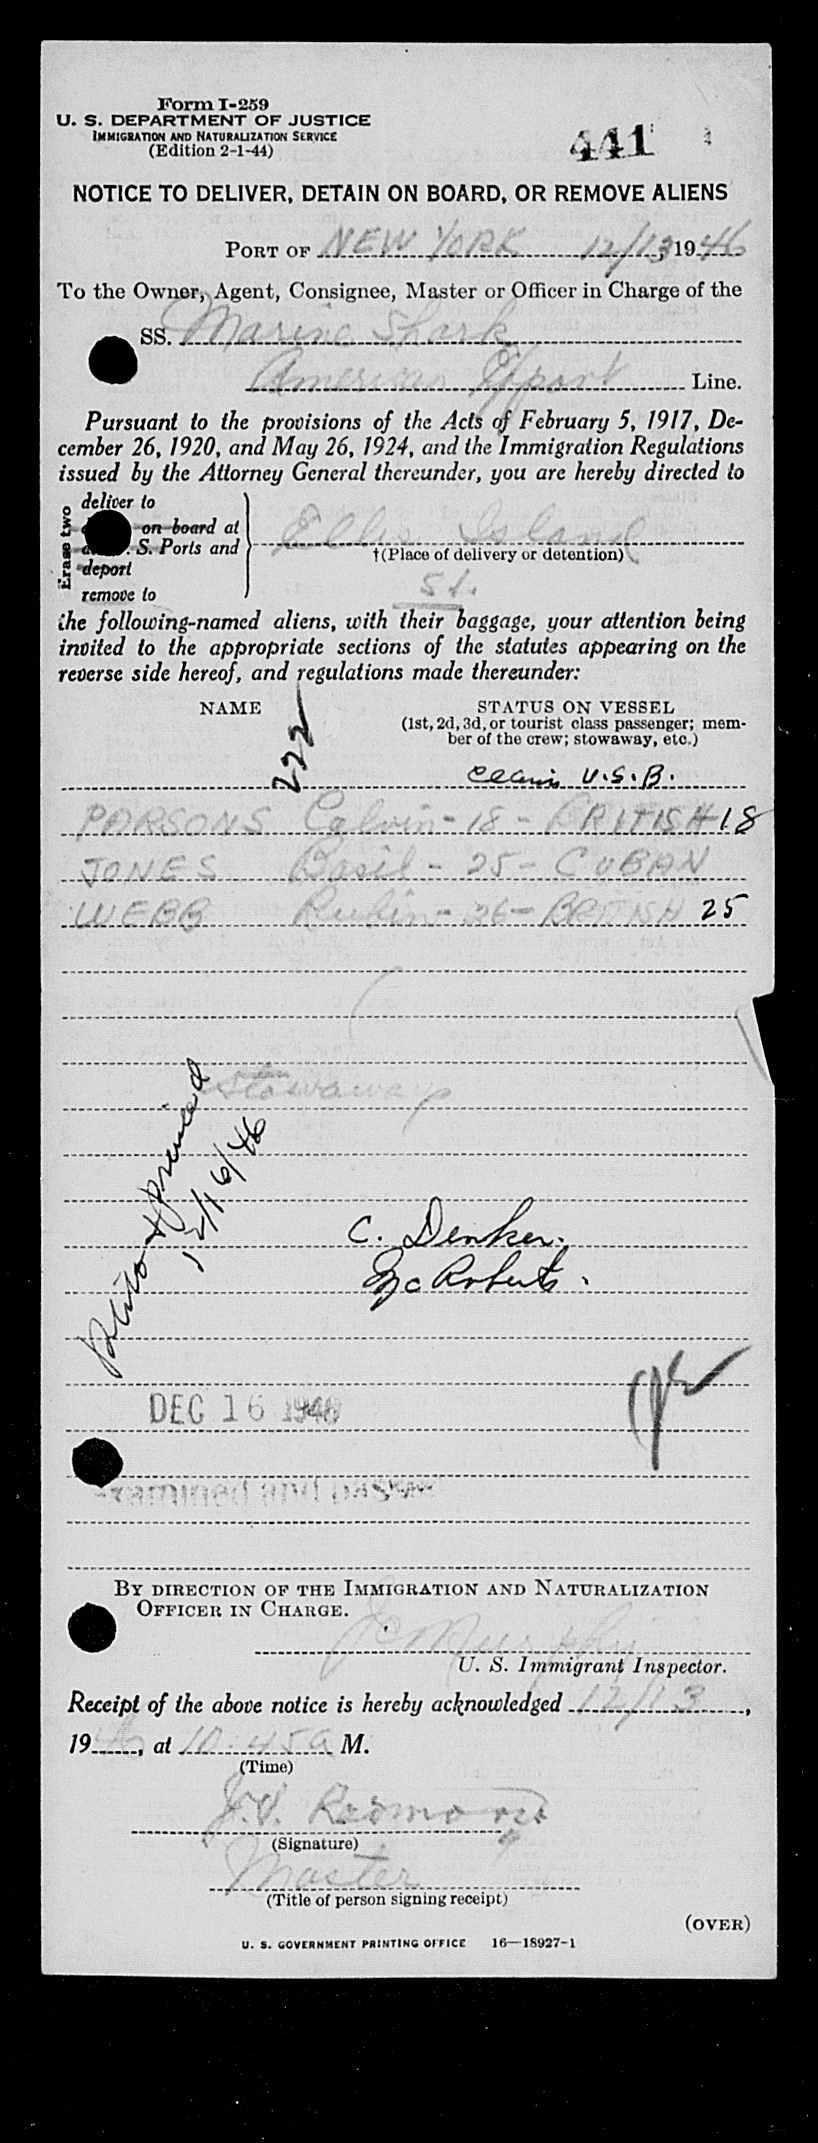 Form I-259
U. S. DEPARTMENT OF JUSTICE
IMMIGRATION AND NATURALIZATION SERVICE
(Edition 2-1-44)
441
NOTICE TO DELIVER, DETAIN ON BOARD, OR REMOVE ALIENS
PORT OF NEW YORK 12/13, 1946
To the Owner, Agent, Consignee, Master or Officer in Charge of the
SS. Marine Shark
American Export Line.
Pursuant to the provisions of the Acts of February 5, 1917, De-
cember 26, 1920, and May 26, 1924, and the Immigration Regulations
issued by the Attorney General thereunder, you are hereby directed to
Erase two
deliver to
on board at
S. Ports and
deport
remove to
Ellis Island
†(Place of delivery or detention)
St.
the following-named aliens, with their baggage, your attention being
invited to the appropriate sections of the statutes appearing on the
reverse side hereof, and regulations made thereunder:
NAME
STATUS ON VESSEL
(1st, 2d, 3d, or tourist class passenger; mem-
ber of the crew; stowaway, etc.)
222
Claim U.S.B.
PARSONS Calvin - 18 - BRITISH 18
JONES Basil - 25 - CUBAN
WEBB Rubin - 26 - BRITISH 25
Stowaways
Photo & prined
12/16/46
C. Denker.
McRoberts.
DEC 16 1946
Examined and passed
BY DIRECTION OF THE IMMIGRATION AND NATURALIZATION
OFFICER IN CHARGE.
J C Murphy
U. S. Immigrant Inspector.
Receipt of the above notice is hereby acknowledged 12/13,
1946, at 10:45 A M.
(Time)
J.V. Redmond
(Signature)
Master
(Title of person signing receipt)
(OVER)
U. S. GOVERNMENT PRINTING OFFICE 16—18927-1